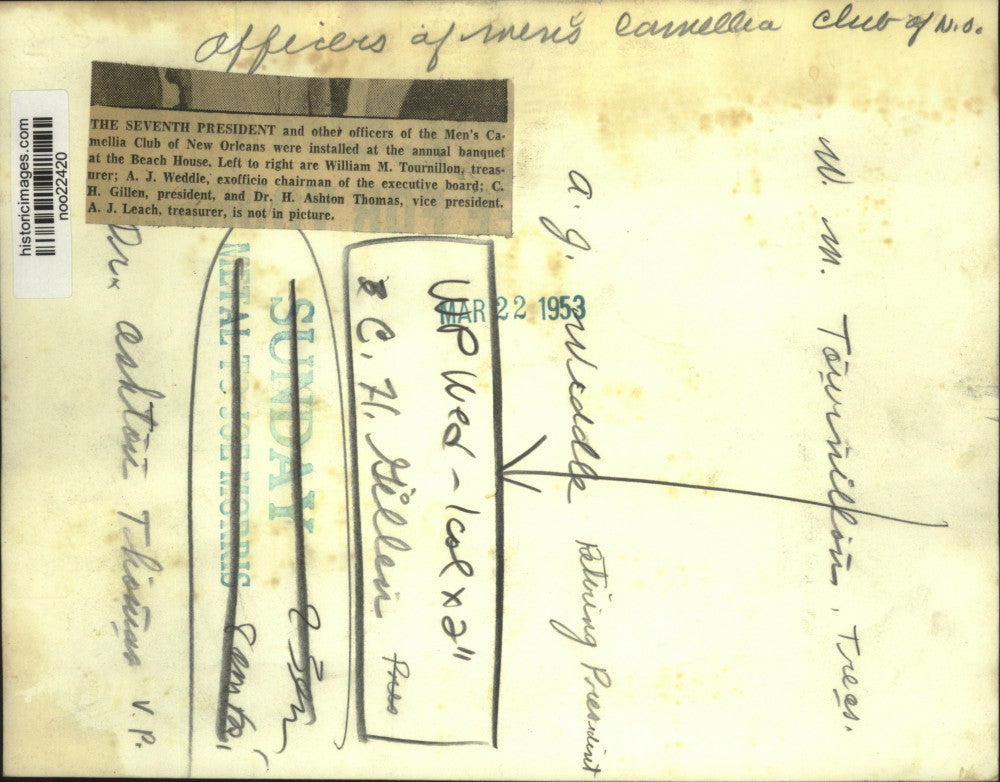 Officers of Men's Camellia Club of N.O.
historicimages.com
noo22420
THE SEVENTH PRESIDENT and other officers of the Men's Ca-
mellia Club of New Orleans were installed at the annual banquet
at the Beach House. Left to right are William M. Tournillon, treas-
urer; A. J. Weddle, exofficio chairman of the executive board; C.
H. Gillen, president, and Dr. H. Ashton Thomas, vice president.
A. J. Leach, treasurer, is not in picture.
MAR 22 1953
W. M. Tournillon, Treas.
A. J. Weddle Retiring President
WP Wed - 1 col x 2"
C. H. Gillen Pres
SUNDAY
METAL TO JOE MORRIS
Dr. Ashton Thomas V.P.